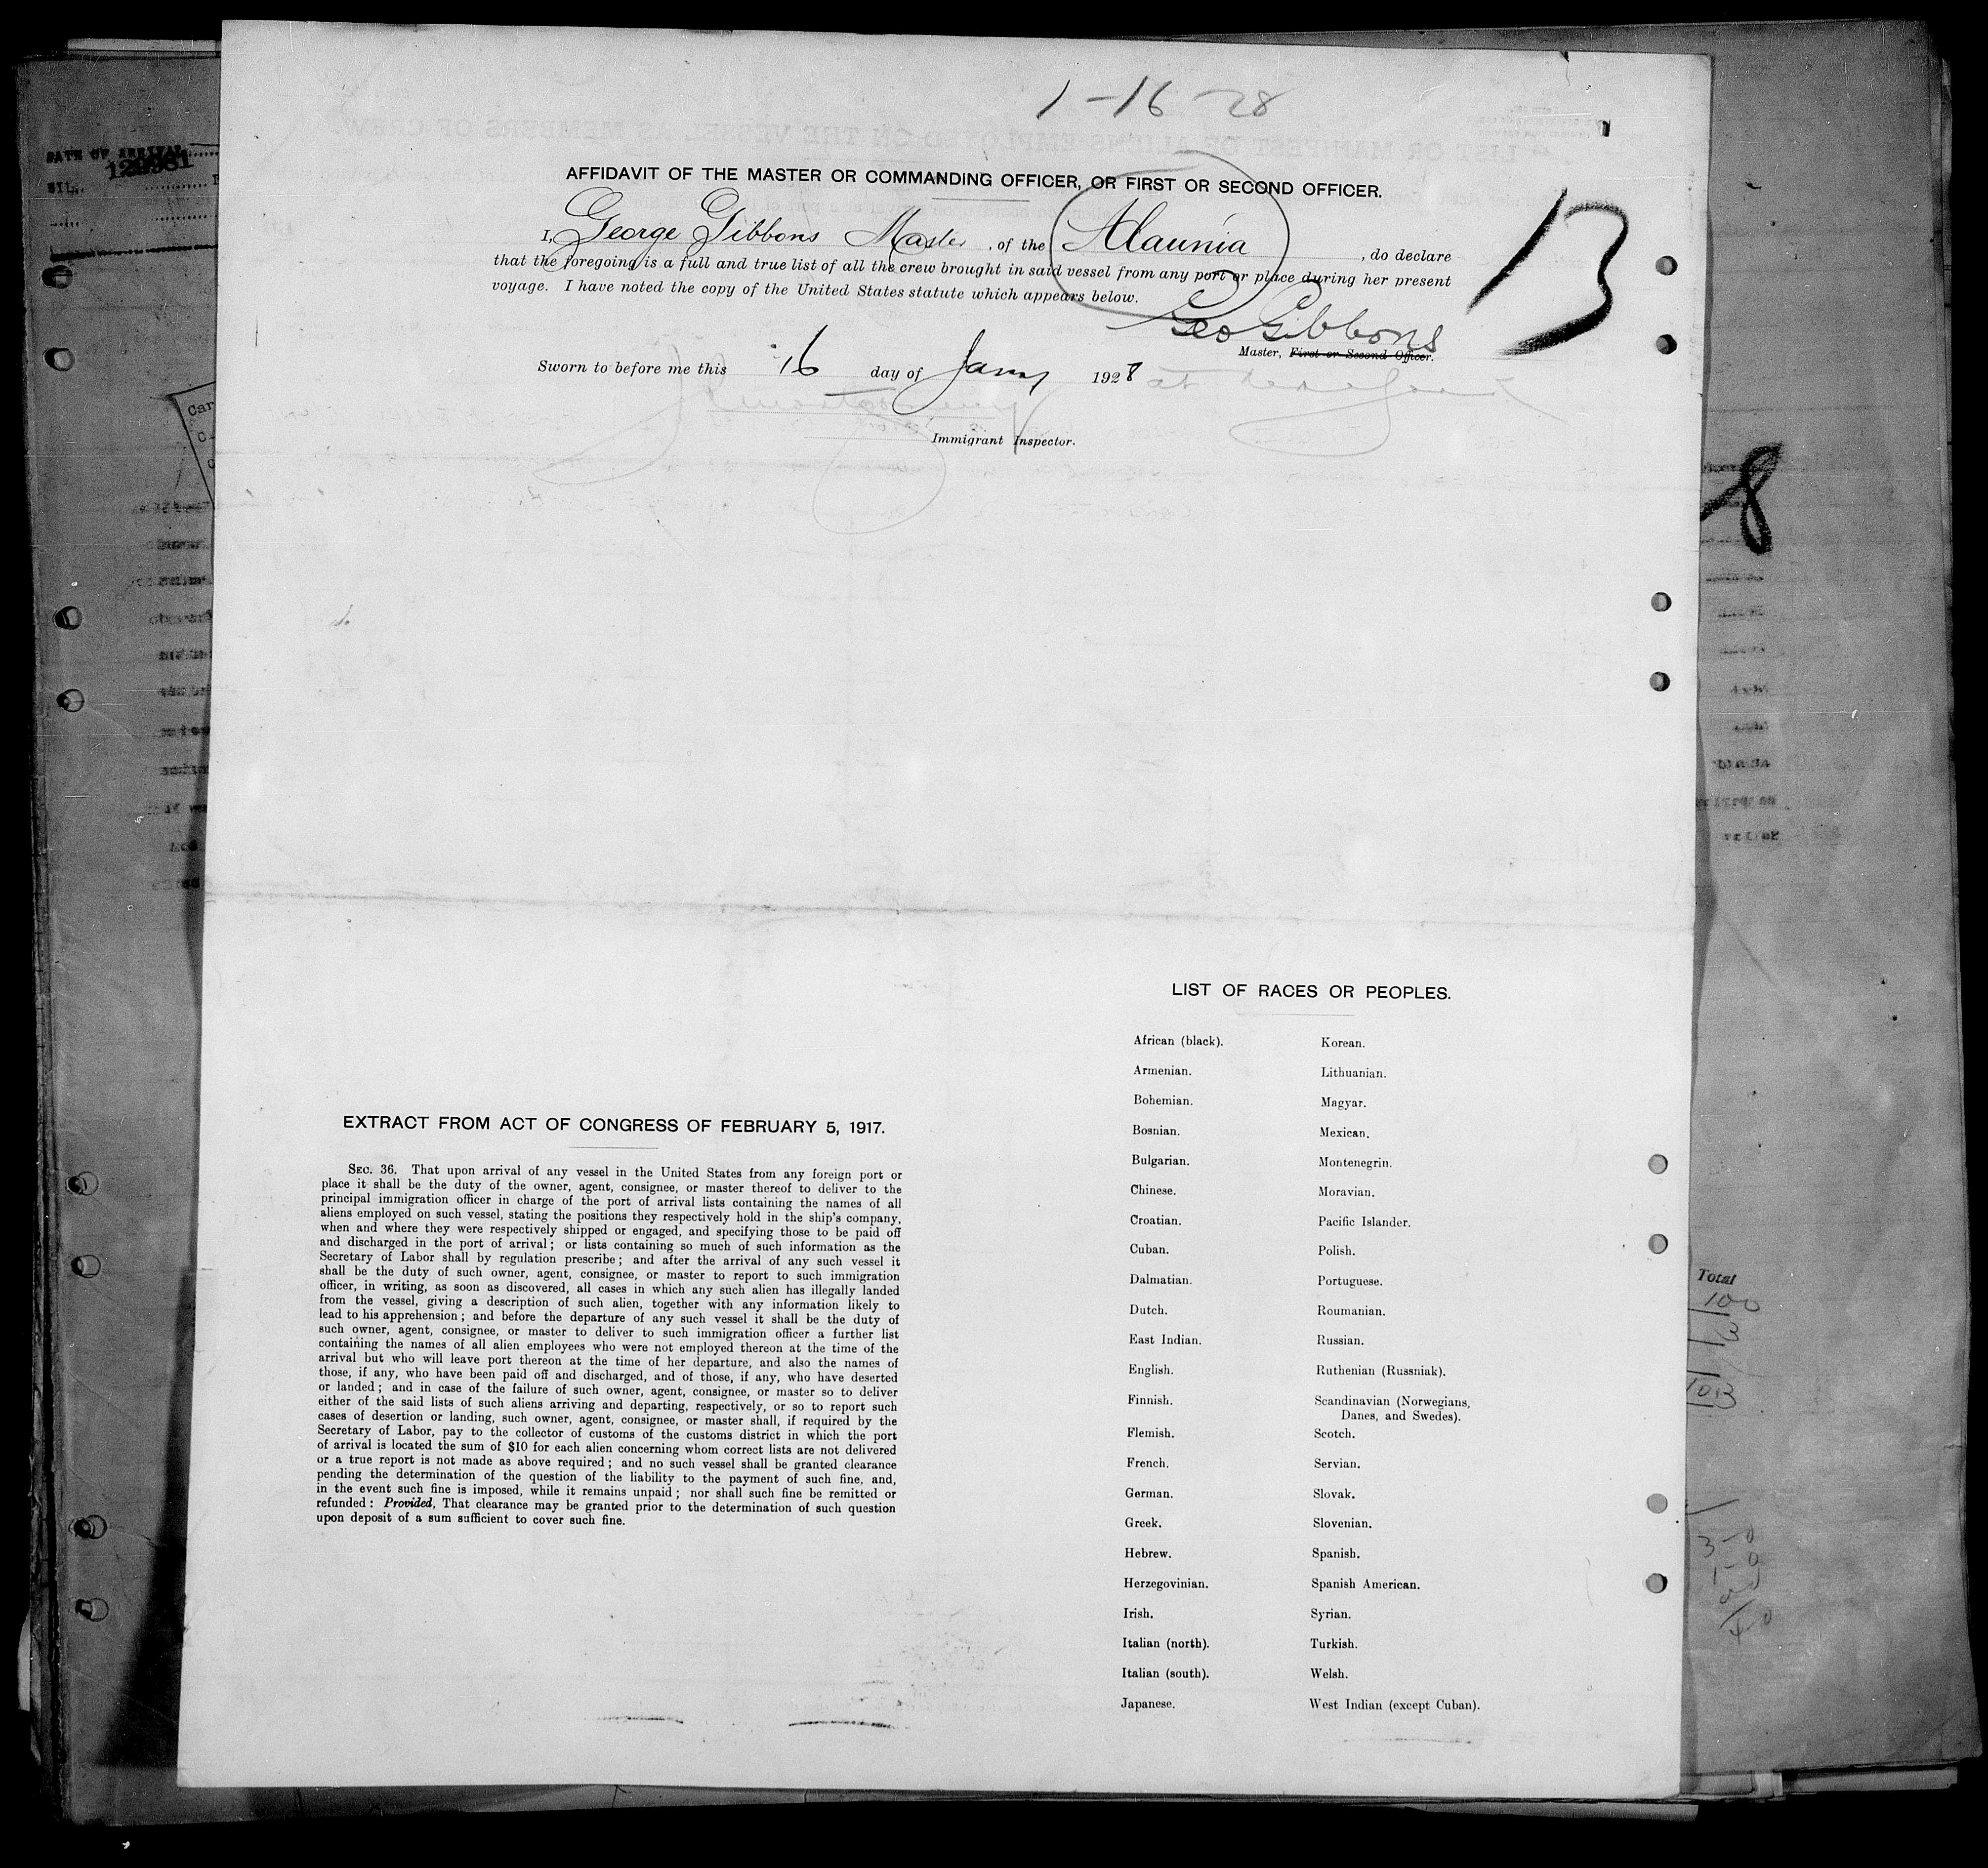 1-16-28
AFFIDAVIT OF THE MASTER OR COMMANDING OFFICER, OR FIRST OR SECOND OFFICER.
I, George Gibbons Master, of the Alaunia, do declare
that the foregoing is a full and true list of all the crew brought in said vessel from any port or place during her present
voyage. I have noted the copy of the United States statute which appears below.
13
Geo Gibbons
Master, First or Second Officer.
Sworn to before me this 16 day of Jany 1928
Immigrant Inspector.
DATE OF ARRIVAL
129981
Car
8
EXTRACT FROM ACT OF CONGRESS OF FEBRUARY 5, 1917.
SEC. 36. That upon arrival of any vessel in the United States from any foreign port or
place it shall be the duty of the owner, agent, consignee, or master thereof to deliver to the
principal immigration officer in charge of the port of arrival lists containing the names of all
aliens employed on such vessel, stating the positions they respectively hold in the ship's company,
when and where they were respectively shipped or engaged, and specifying those to be paid off
and discharged in the port of arrival; or lists containing so much of such information as the
Secretary of Labor shall by regulation prescribe; and after the arrival of any such vessel it
shall be the duty of such owner, agent, consignee, or master to report to such immigration
officer, in writing, as soon as discovered, all cases in which any such alien has illegally landed
from the vessel, giving a description of such alien, together with any information likely to
lead to his apprehension; and before the departure of any such vessel it shall be the duty of
such owner, agent, consignee, or master to deliver to such immigration officer a further list
containing the names of all alien employees who were not employed thereon at the time of the
arrival but who will leave port thereon at the time of her departure, and also the names of
those, if any, who have been paid off and discharged, and of those, if any, who have deserted
or landed; and in case of the failure of such owner, agent, consignee, or master so to deliver
either of the said lists of such aliens arriving and departing, respectively, or so to report such
cases of desertion or landing, such owner, agent, consignee, or master shall, if required by the
Secretary of Labor, pay to the collector of customs of the customs district in which the port
of arrival is located the sum of $10 for each alien concerning whom correct lists are not delivered
or a true report is not made as above required; and no such vessel shall be granted clearance
pending the determination of the question of the liability to the payment of such fine, and,
in the event such fine is imposed, while it remains unpaid; nor shall such fine be remitted or
refunded: Provided, That clearance may be granted prior to the determination of such question
upon deposit of a sum sufficient to cover such fine.
LIST OF RACES OR PEOPLES.
African (black).
Armenian.
Bohemian.
Bosnian.
Bulgarian.
Chinese.
Croatian.
Cuban.
Dalmatian.
Dutch.
East Indian.
English.
Finnish.
Flemish.
French.
German.
Greek.
Hebrew.
Herzegovinian.
Irish.
Italian (north).
Italian (south).
Japanese.
Korean.
Lithuanian.
Magyar.
Mexican.
Montenegrin.
Moravian.
Pacific Islander.
Polish.
Portuguese.
Roumanian.
Russian.
Ruthenian (Russniak).
Scandinavian (Norwegians,
Danes, and Swedes).
Scotch.
Servian.
Slovak.
Slovenian.
Spanish.
Spanish American.
Syrian.
Turkish.
Welsh.
West Indian (except Cuban).
Total
100